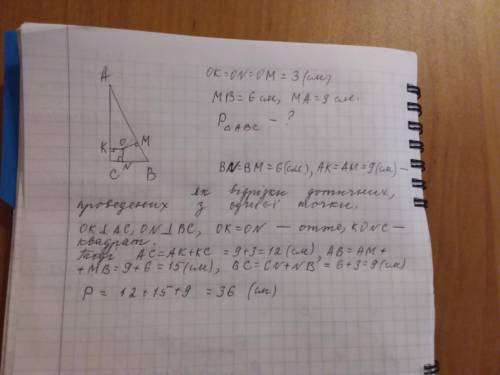 A
OK=ON=OM = 3 (см)
MB = 6 см, MA = 9 см.
P△ABC - ?
O M
K
N
C B
BN=BM=6(см), AK=AM=9(см) –
як відрізки дотичних,
проведених з однієї точки.
OK⊥AC, ON⊥BC, OK=ON — отже, KONC –
квадрат.
Тоді AC=AK+KC = 9+3=12 (см), AB=AM+
+MB=9+6=15(см), BC=CN+NB=6+3=9(см)
P = 12+15+9 = 36 (см)